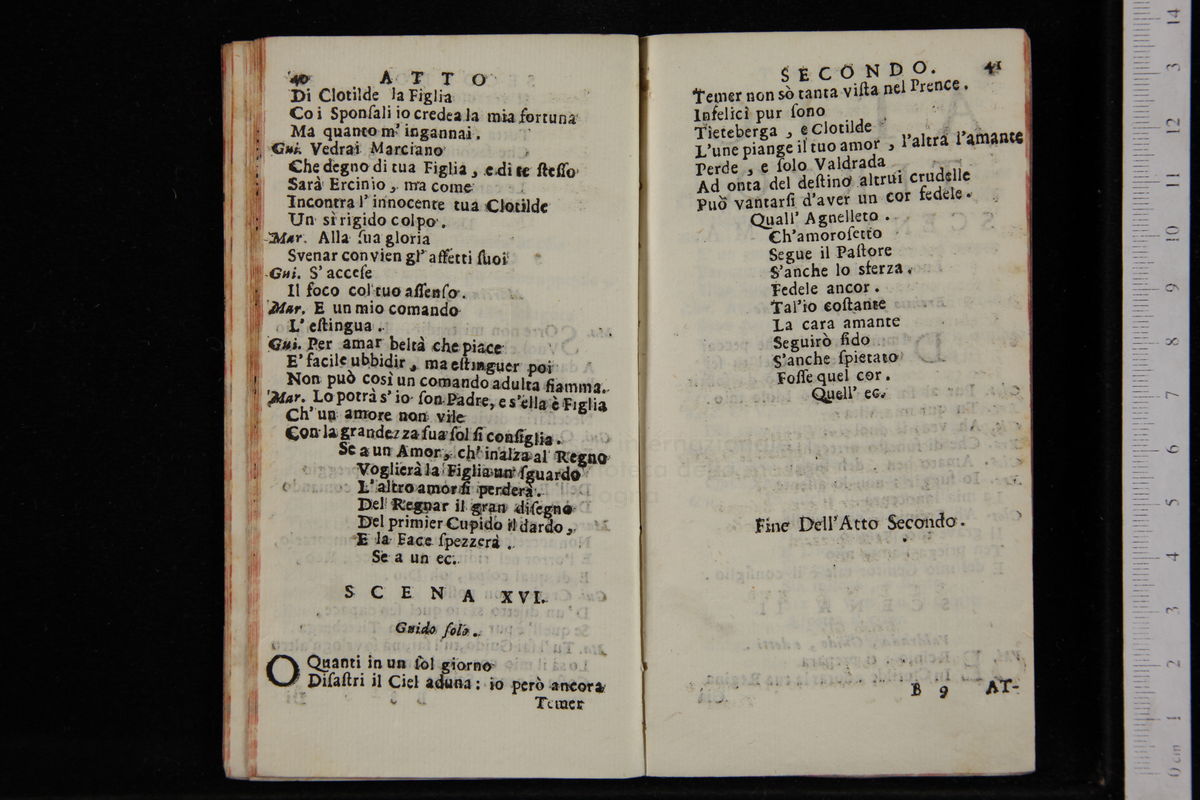 40 ATTO
Di Clotilde la Figlia
Co i Sponſali io credea la mia fortuna
Ma quanto m' ingannai.
Gui. Vedrai Marciano
Che degno di tua Figlia, e di te ſteſſo
Sarà Ercinio, ma come
Incontra l' innocente tua Clotilde
Un sì rigido colpo.
Mar. Alla ſua gloria
Svenar convien gl' affetti ſuoi
Gui. S' acceſe
Il foco col tuo aſſenſo.
Mar. E un mio comando
L' eſtingua.
Gui. Per amar beltà che piace
E' facile ubbidir, ma eſtinguer poi
Non può così un comando adulta fiamma.
Mar. Lo potrà s' io ſon Padre, e s'ella è Figlia
Ch' un amore non vile
Con la grandezza ſua ſol ſi conſiglia.
Se a un Amor, ch' inalza al Regno
Voglierà la Figlia un ſguardo
L' altro amor ſi perderà.
Del Regnar il gran diſegno
Del primier Cupido il dardo,
E la Face ſpezzerà.
Se a un ec.
SCENA XVI.
Guido ſolo.
O Quanti in un ſol giorno
Diſaſtri il Ciel aduna: io però ancora
Temer
SECONDO. 41
Temer non sò tanta viſta nel Prence.
Infelici pur ſono
Tieteberga, e Clotilde
L'une piange il tuo amor, l'altra l'amante
Perde, e ſolo Valdrada
Ad onta del deſtino altrui crudelle
Può vantarſi d'aver un cor fedele.
Quall' Agnelleto.
Ch'amoroſetto
Segue il Paſtore
S'anche lo sferza,
Fedele ancor.
Tal'io coſtante
La cara amante
Seguirò fido
S'anche ſpietato
Foſſe quel cor.
Quell' ec.
Fine Dell'Atto Secondo.
B 9 AT-